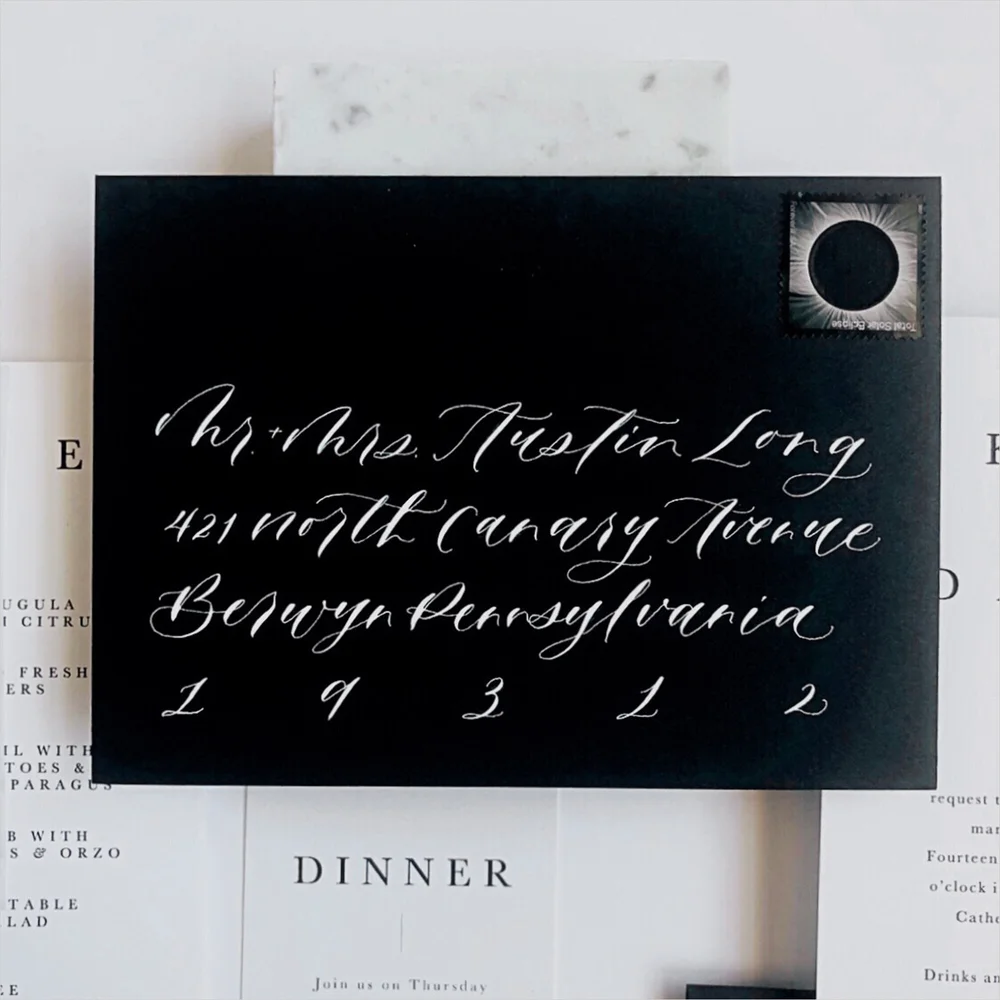 Total Solar Eclipse
Mr. + Mrs. Austin Long
421 North Canary Avenue
Berwyn Pennsylvania
1 9 3 1 2
E
UGULA
CITRU
FRESH
ERS
IL WITH
TOES &
PARAGUS
B WITH
S & ORZO
TABLE
LAD
EE
DINNER
Join us on Thursday
request t
mar
Fourteen
o'clock i
Cathe
Drinks an